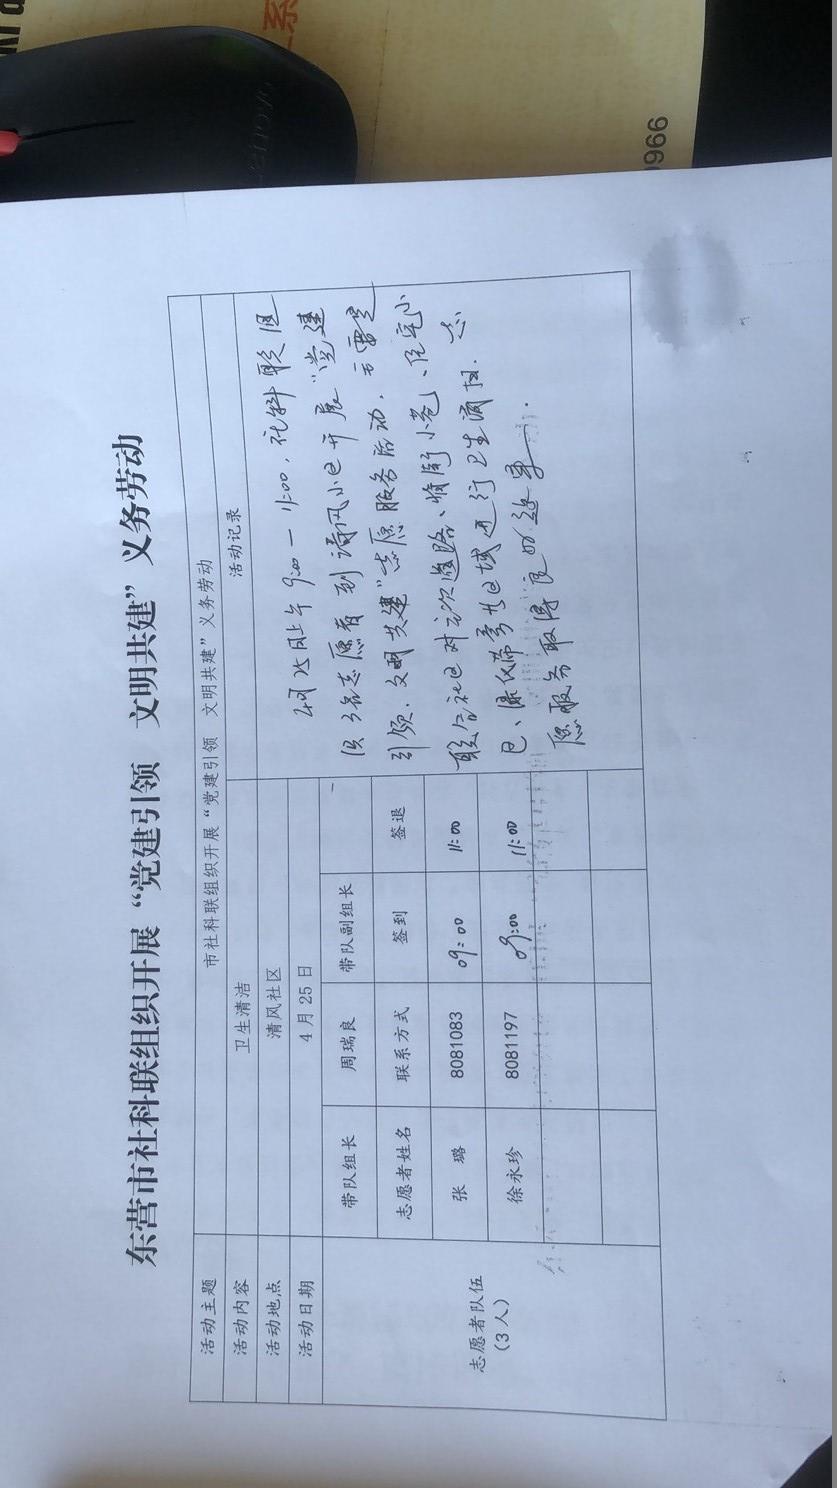 东营市社科联组织开展“党建引领 文明共建”义务劳动
活动主题 市社科联组织开展“党建引领 文明共建”义务劳动
活动内容 卫生清洁 活动记录
活动地点 清风社区
活动日期 4月25日
志愿者队伍
(3人)
带队组长 周瑞良 带队副组长
志愿者姓名 联系方式 签到 签退
张 璐 8081083 09:00 11:00
徐永珍 8081197 09:00 11:00
4月25日上午9:00-11:00,社科联组
织3名志愿者到清风小区开展“党建
引领,文明共建”志愿服务活动,
联合社区对主次道路、背街小巷、住宅小
区、绿化带等区域进行卫生清扫.志
愿服务取得良好效果.
enovo
0966
系